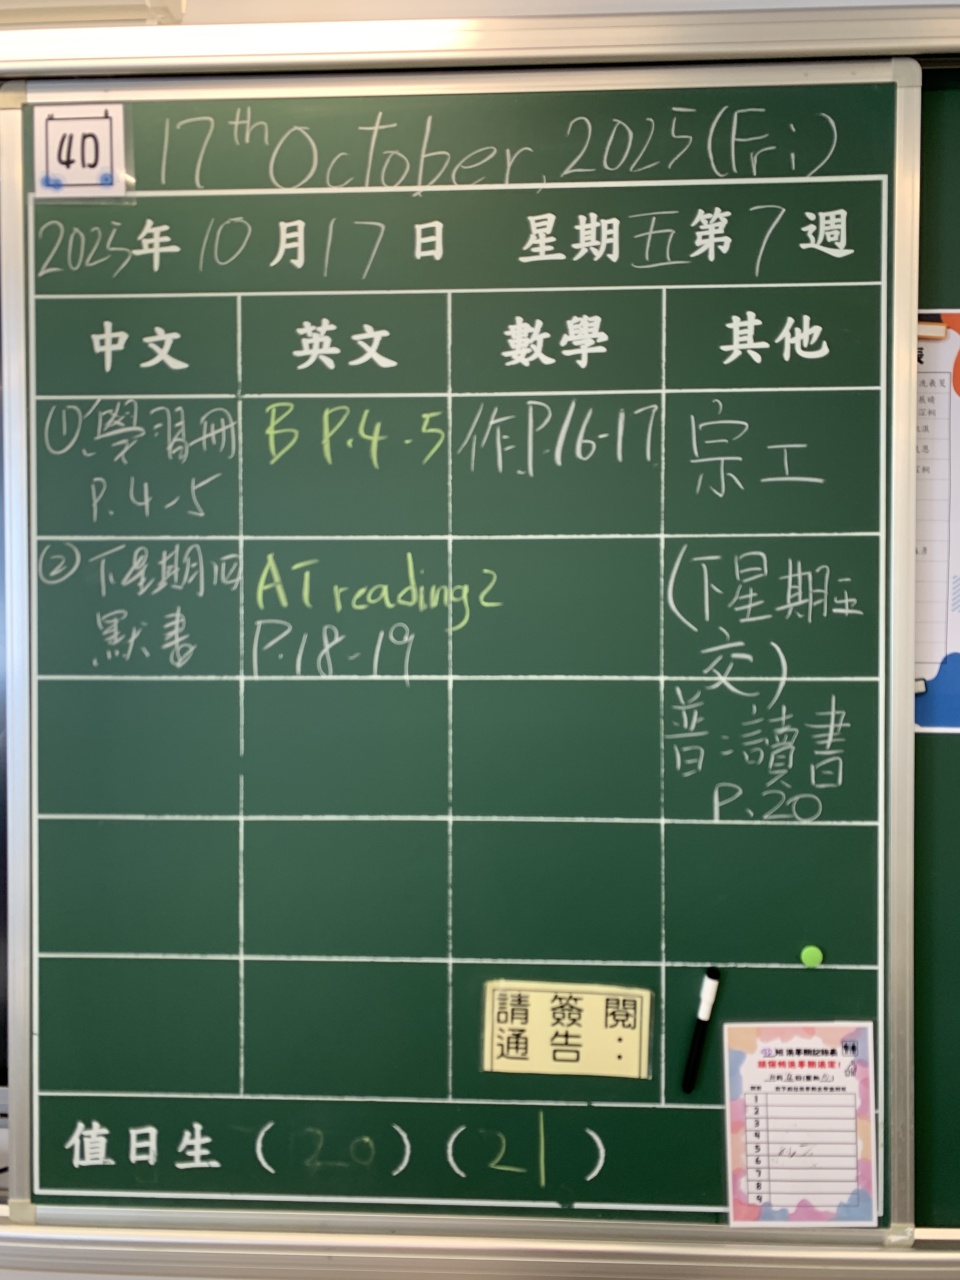 4D
17th October, 2025(Fri)
2025年10月17日 星期五第7週
中文 英文 數學 其他
①學習冊
P.4-5
B P.4-5
作P.16-17
宗工
②下星期四
默書
AT reading 2
P.18-19
(下星期五
交)
普:讀書
P.20
請簽閱
通告：
值日生 (20) (21)
1
2
3
4
5
6
7
8
9